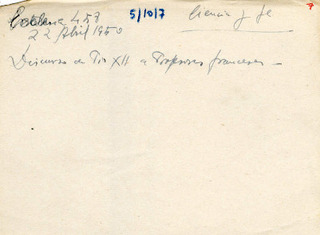 Ecclesia 458 5/10/7 Ciencia y fe ?
22 Abril 1950
Discurso de Pio XII a Profesores franceses